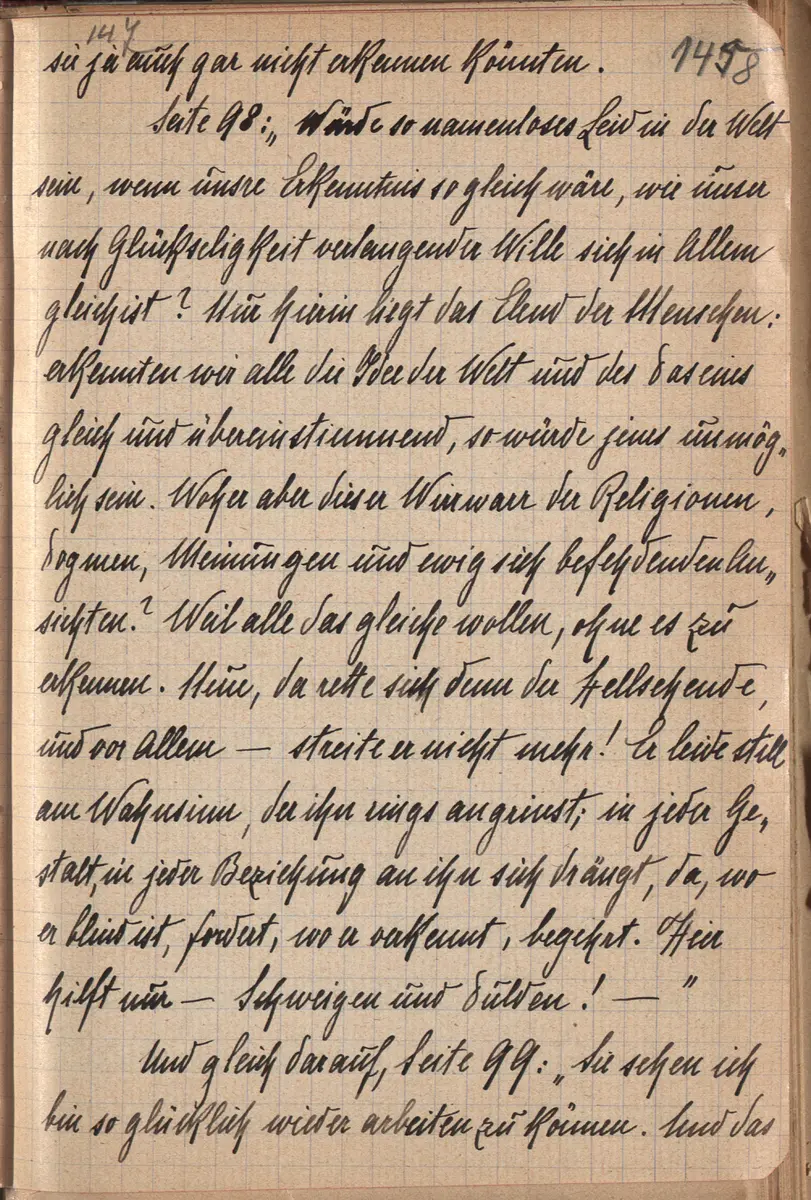 147
1458
sie ja auch gar nicht erkennen könnten.
Seite 98: „Würde so namenloses Leid in der Welt
sein, wenn unsre Erkenntnis so gleich wäre, wie unser
nach Glückseligkeit verlangender Wille sich in Allem
gleich ist? Nur hierin liegt das Elend der Menschen:
erkennten wir alle die Idee der Welt und des Daseins
gleich und übereinstimmend, so würde jenes unmög„
lich sein. Woher aber dieser Wirrwarr der Religionen,
Dogmen, Meinungen und ewig sich befehdenden An„
sichten? Weil alle das gleiche wollen, ohne es zu
erkennen. Nun, da rette sich denn der Hellsehende,
und vor Allem — streite er nicht mehr! Er leide still
am Wahnsinn, der ihn rings angrinst; in jeder Ge„
stalt, in jeder Beziehung an ihn sich drängt, da, wo
er blind ist, fordert, wo er verkennt, begehrt. Hier
hilft nur — Schweigen und Dulden! — "
Und gleich darauf, Seite 99: „Sie sehen ich
bin so glücklich wieder arbeiten zu können. Und das